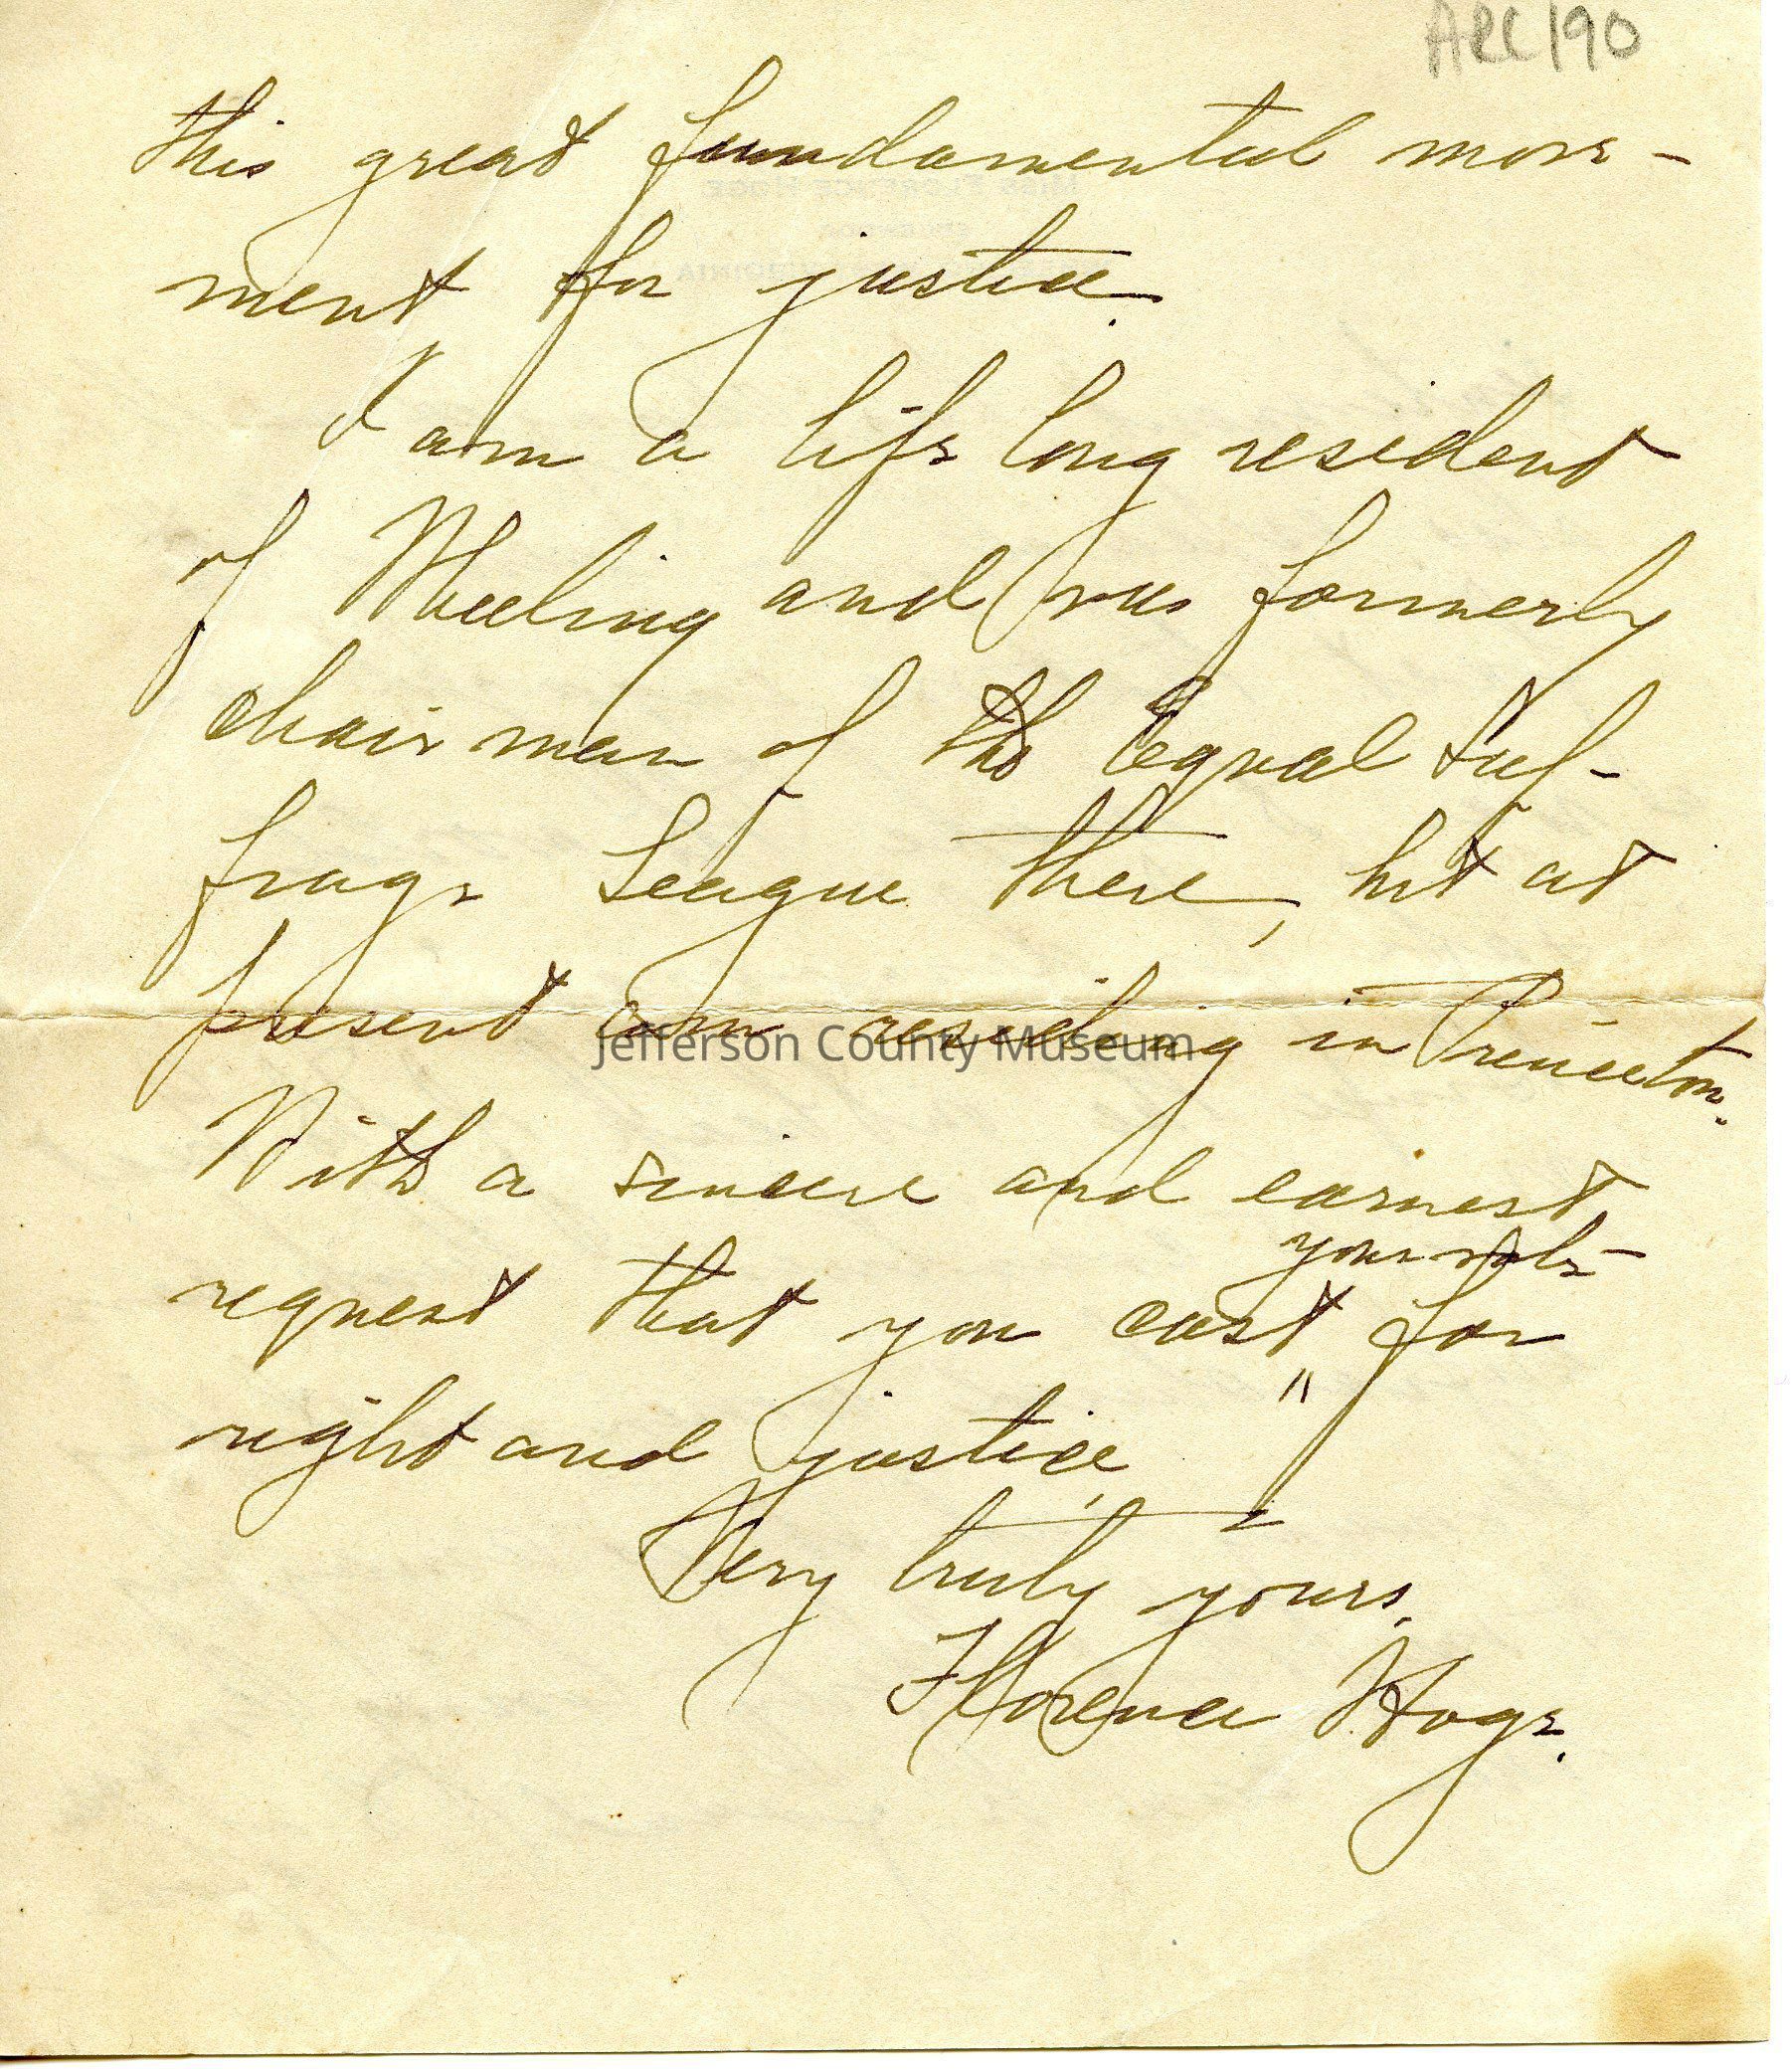 Acc 190
this great fundamental move-
ment for justice.
I am a life long resident
of Wheeling and was formerly
chairman of the Equal Suf-
frage League there, but at
present am residing in Princeton.
Jefferson County Museum
With a sincere and earnest
your vote
request that you cast for
"
right and justice,
Very truly yours,
Florence Hoge.